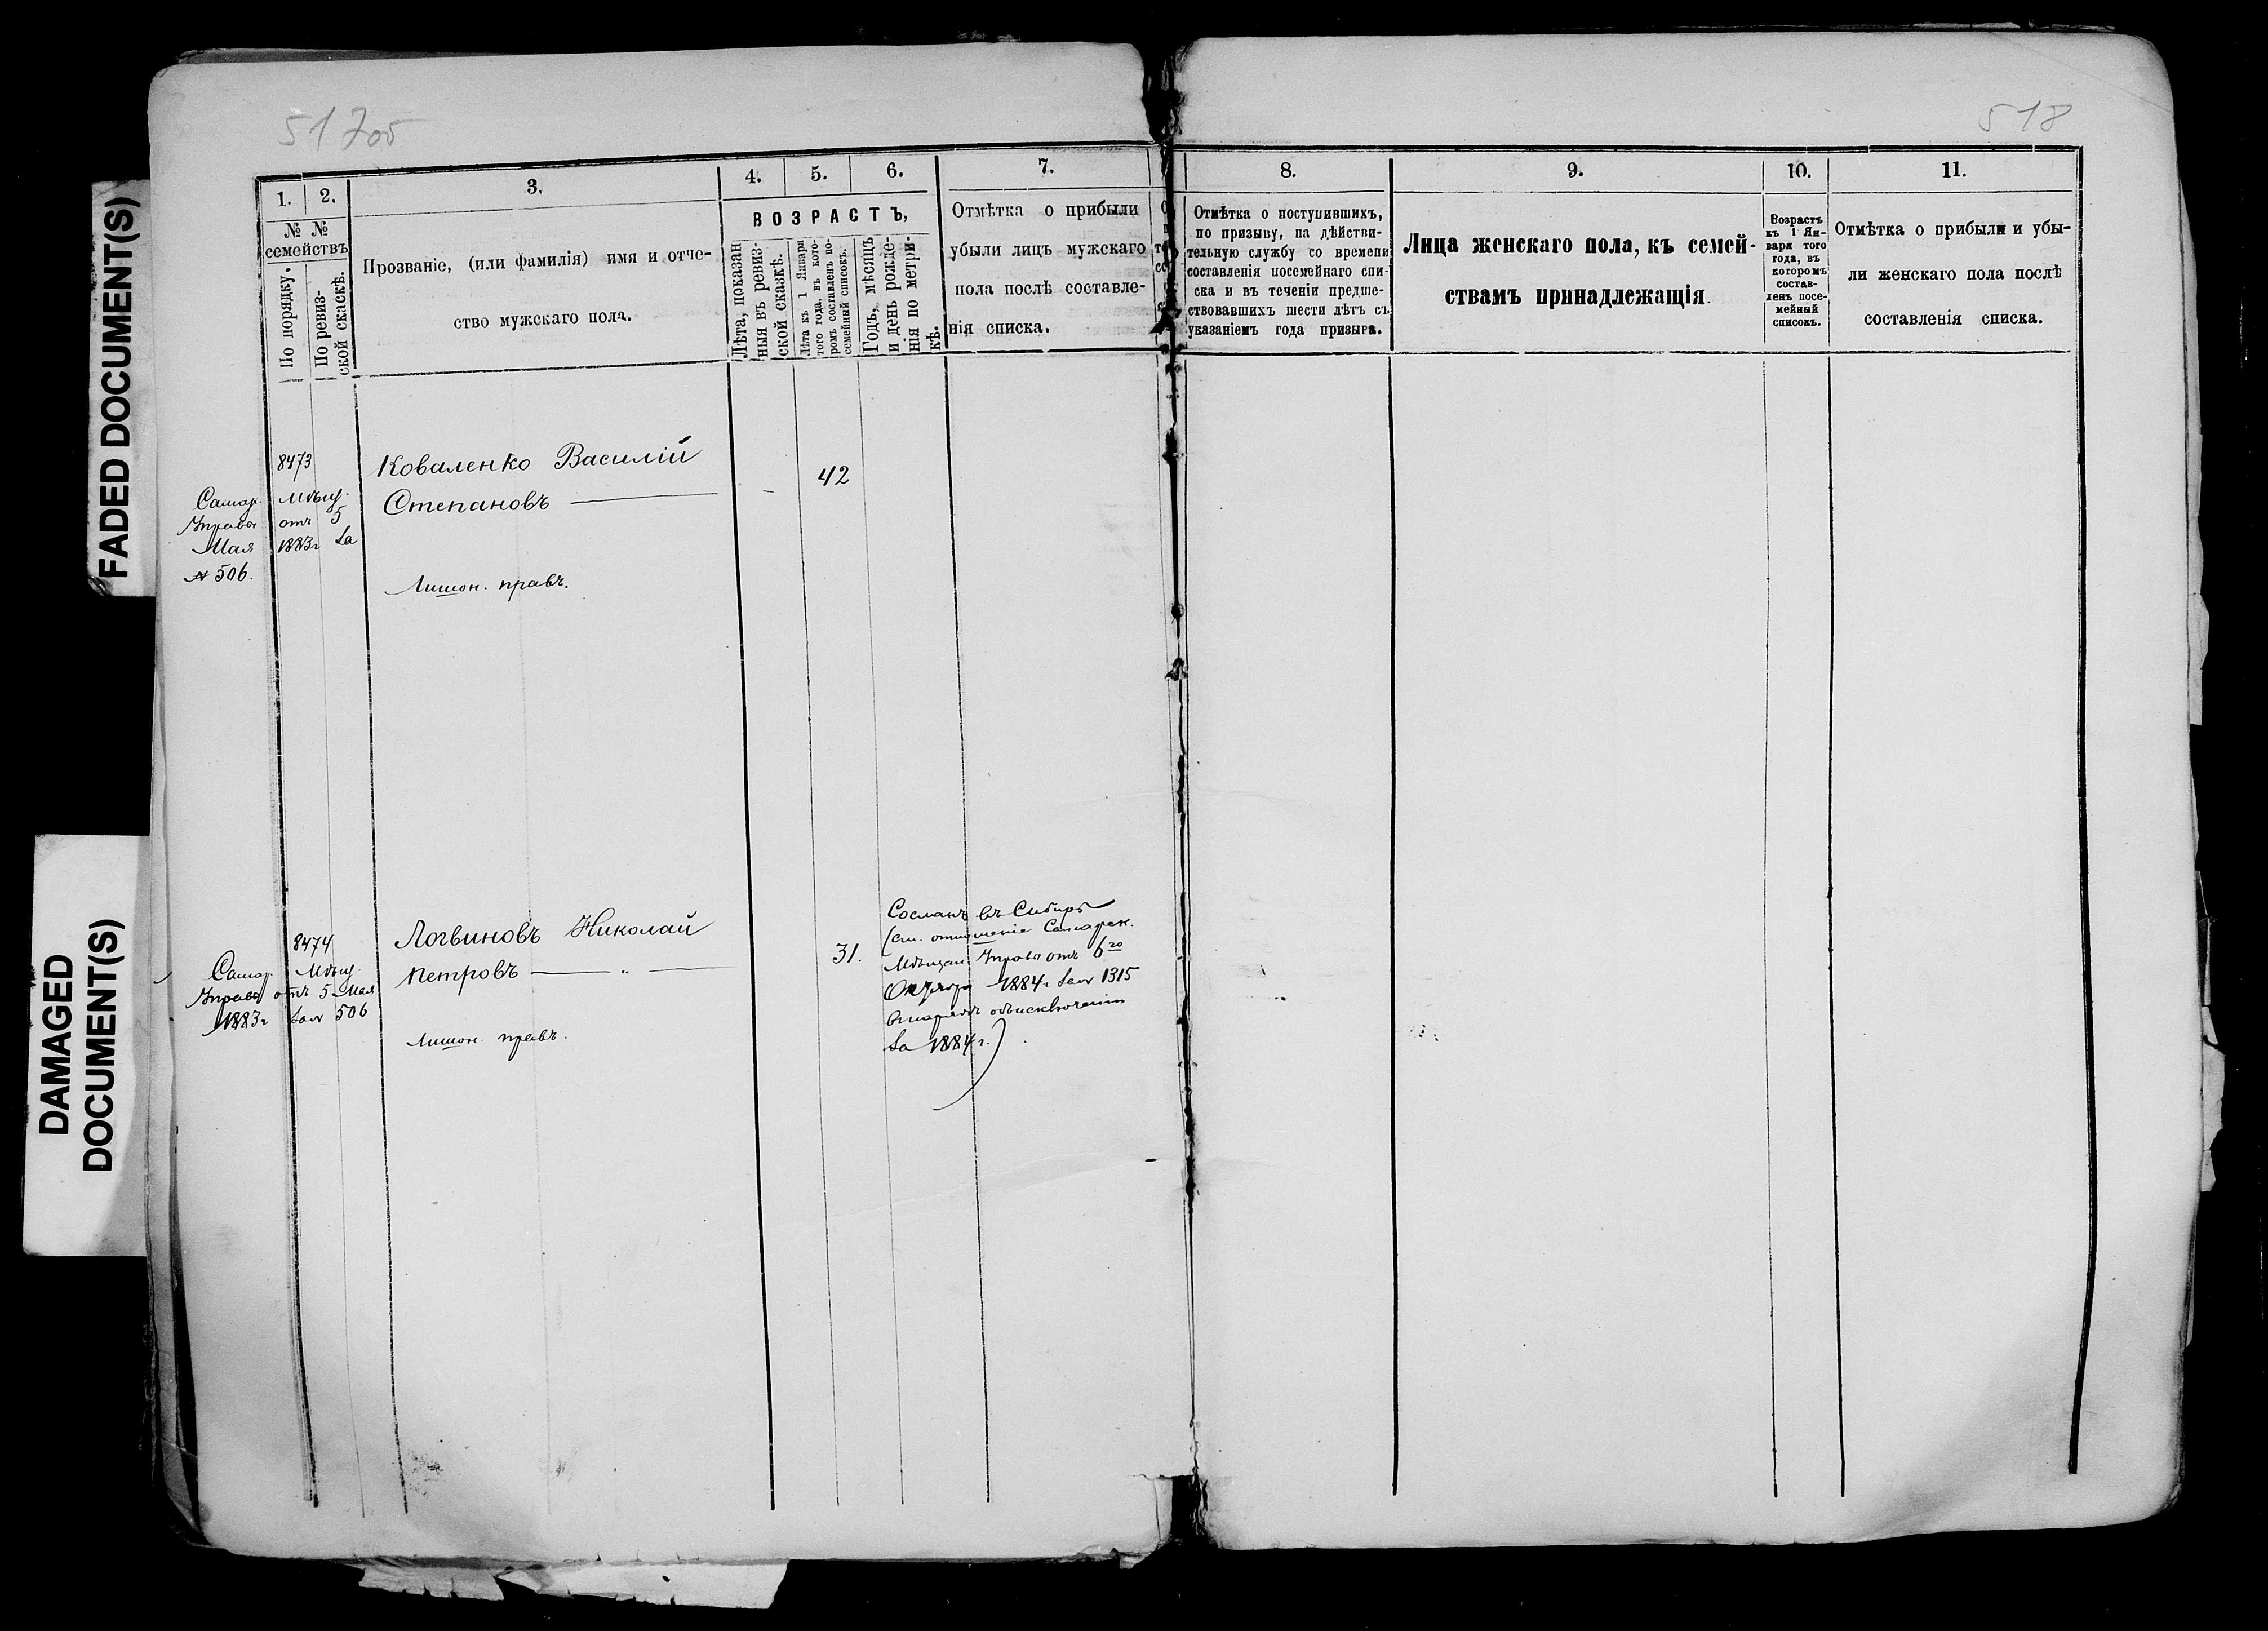 517об
518
FADED DOCUMENT(S)
DAMAGED
DOCUMENT(S)
1.
2.
3.
4.
5.
6.
7.
8.
9.
10.
11.
№ №
семействъ
По порядку.
По ревиз-
ской скаскѣ.
Прозваніе, (или фамилія) имя и отче-
ство мужскаго пола.
ВОЗРАСТЪ,
Лѣта, показан
ныя въ ревиз-
ской сказкѣ.
Лѣта къ 1 Января
того года, въ кото-
ромъ составленъ по-
семейный списокъ.
Годъ, мѣсяцъ
и день рожде-
нія по метри-
кѣ.
Отмѣтка о прибыли
убыли лицъ мужскаго
пола послѣ составле-
нія списка.
Отмѣтка о поступившихъ,
по призыву, на дѣйстви-
тельную службу со времени
составленія посемейнаго спи-
ска и въ теченіи предше-
ствовавшихъ шести лѣтъ съ
указаніемъ года призыва.
Лица женскаго пола, къ семей-
ствамъ принадлежащія.
Возрастъ
къ 1 Ян-
варя того
года, въ
которомъ
состав-
ленъ посе-
мейный
списокъ.
Отмѣтка о прибыли и убы-
ли женскаго пола послѣ
составленія списка.
8473
Коваленко Василій
42
Самар. Мѣщ.
Степановъ
Управы отъ 5
Мая 1883г за
№ 506.
Лишон. правъ.
8474
Логвиновъ Николай
31.
Самар. Мѣщ.
Петровъ — „ —
Управы отъ 5 Мая
1883г за№ 506
Лишон. правъ.
Сосланъ въ Сибирь
(см. отношеніе Самарск.
Мѣщан. Управы отъ 6го
Октября 1884г за№ 1315
объисключеніи
за 1884 г.)